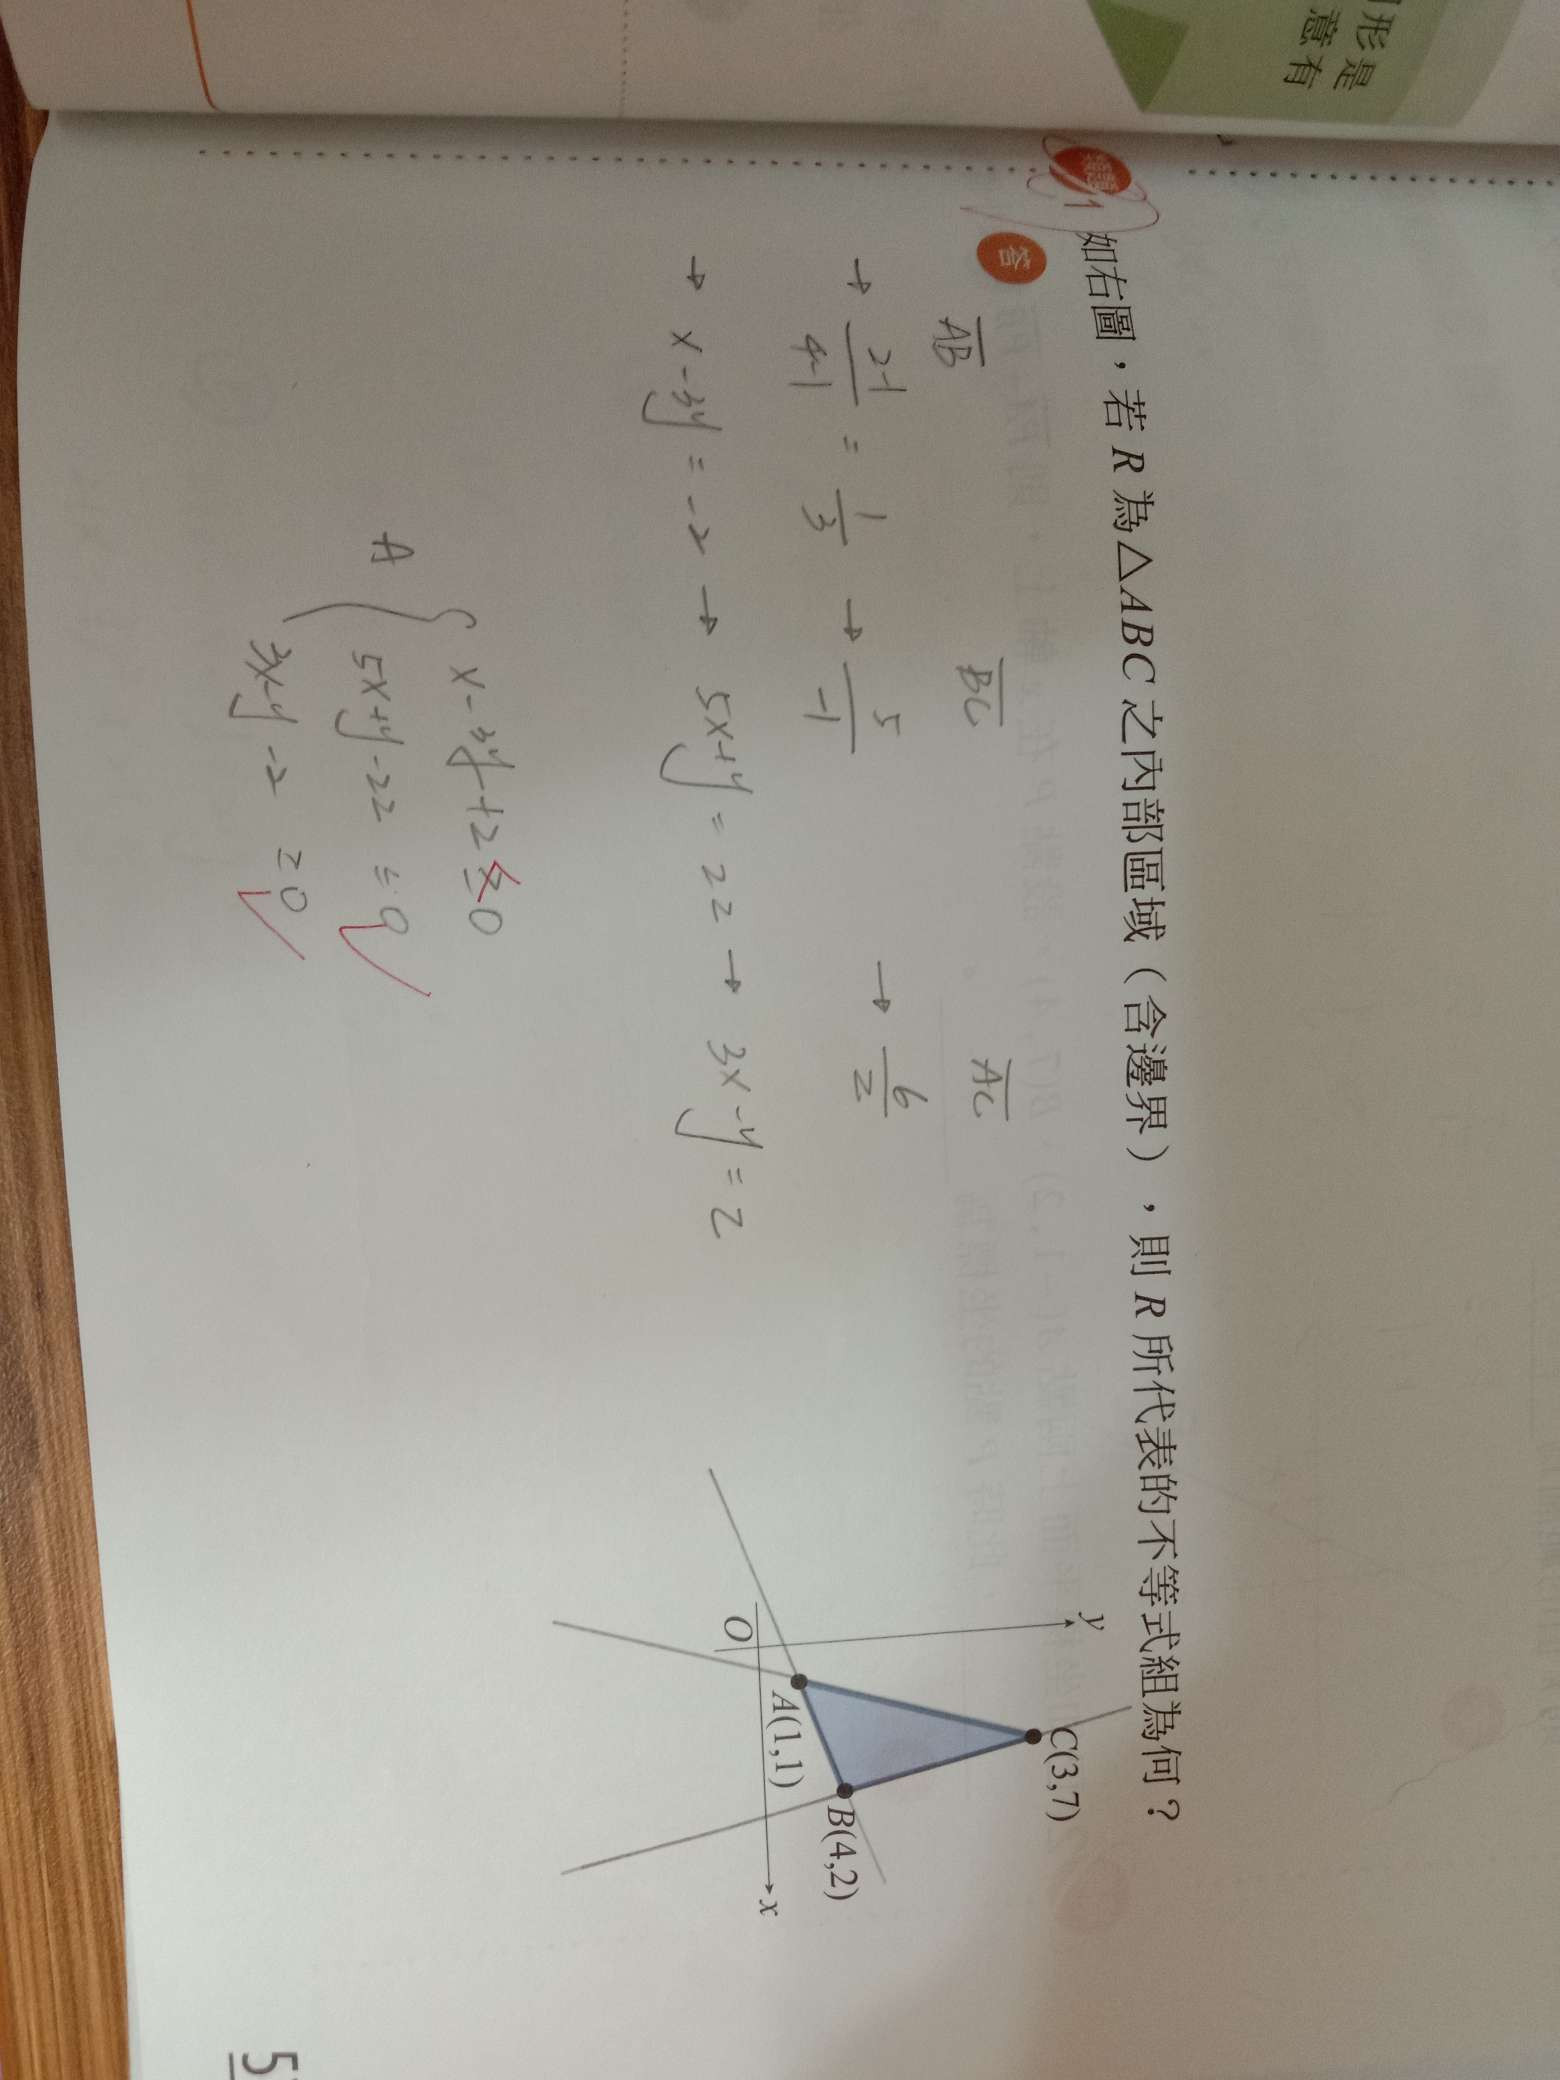 形是
意有
類題
1 如右圖，若 R 為△ABC 之內部區域（含邊界），則 R 所代表的不等式組為何？
答
AB BC AC
→ 2-1/4-1 = 1/3 → 5/-1 → 6/2
→ x-3y=-2 → 5x+y=22 → 3x-y=2
A { x-3y+2≤0
5x+y-22≤0
3x-y-2≥0
y
C(3,7)
B(4,2)
A(1,1)
O
x